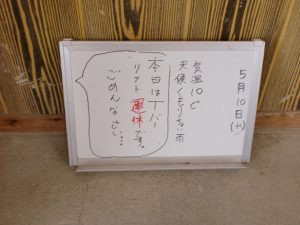 5月10日(火)
気温10℃
天候くもり小雨
本日はTバー
リフト運休です。
ごめんなさい....